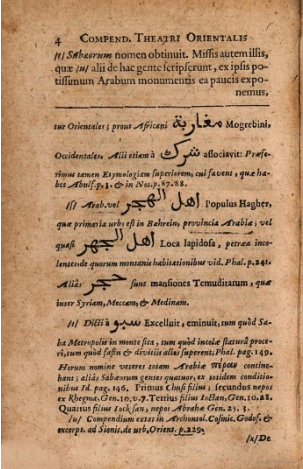 4 COMPEND. THEATRI ORIENTALIS
/t/ Sabæorum nomen obtinuit. Missis autem illis,
quæ /u/ alii de hac gente scripserunt, ex ipsis po-
tissimum Arabum monumentis ea paucis expo-
nemus,
tur Orientales; prout Africani مغاربة Mogrebini,
Occidentales. Alii etiam à شرك associavit: Præfe-
rimus tamen Etymologiam superiorem, cui favent, quæ ha-
bet Abulf. p. 3. & in Not. p. 87. 88.
/s/ Arab. vel اهل الهجر Populus Hagher,
quæ primaria urbs est in Bahrein, provincia Arabiæ; vel
quasi اهل الجهر Loca lapidosa, petræa inco-
lentes de quorum montanis habitationibus vid. Phal. p. 241.
Aliàs حجر sunt mansiones Temuditarum, quæ
inter Syriam, Meccam, & Medinam.
/t/ Dicti à سبو Excelluit, eminuit, tum quòd Sa-
ba Metropolis in monte sita, tum quòd incolæ staturâ proce-
ri, tum quòd fastu & divitiis aliis superent; Phal. pag. 149.
Horum nomine veteres totam Arabiæ contine-
bant; aliàs Sabæorum gentes quatuor, ex totidem conditio-
nibus Id. pag. 146. Primus Chusi filius; secundus nepos
ex Rhegma. Gen. 10. v. 7. Tertius filius Iocktan, Gen. 10. 28.
Quartus filius Iocksan, nepos Abrahæ Gen. 25. 3.
/u/ Compendium extat in Archontol. Cosmic. Godof. &
excerpt. ad Sionit. de urb. Orient. p. 229.
/x/ De